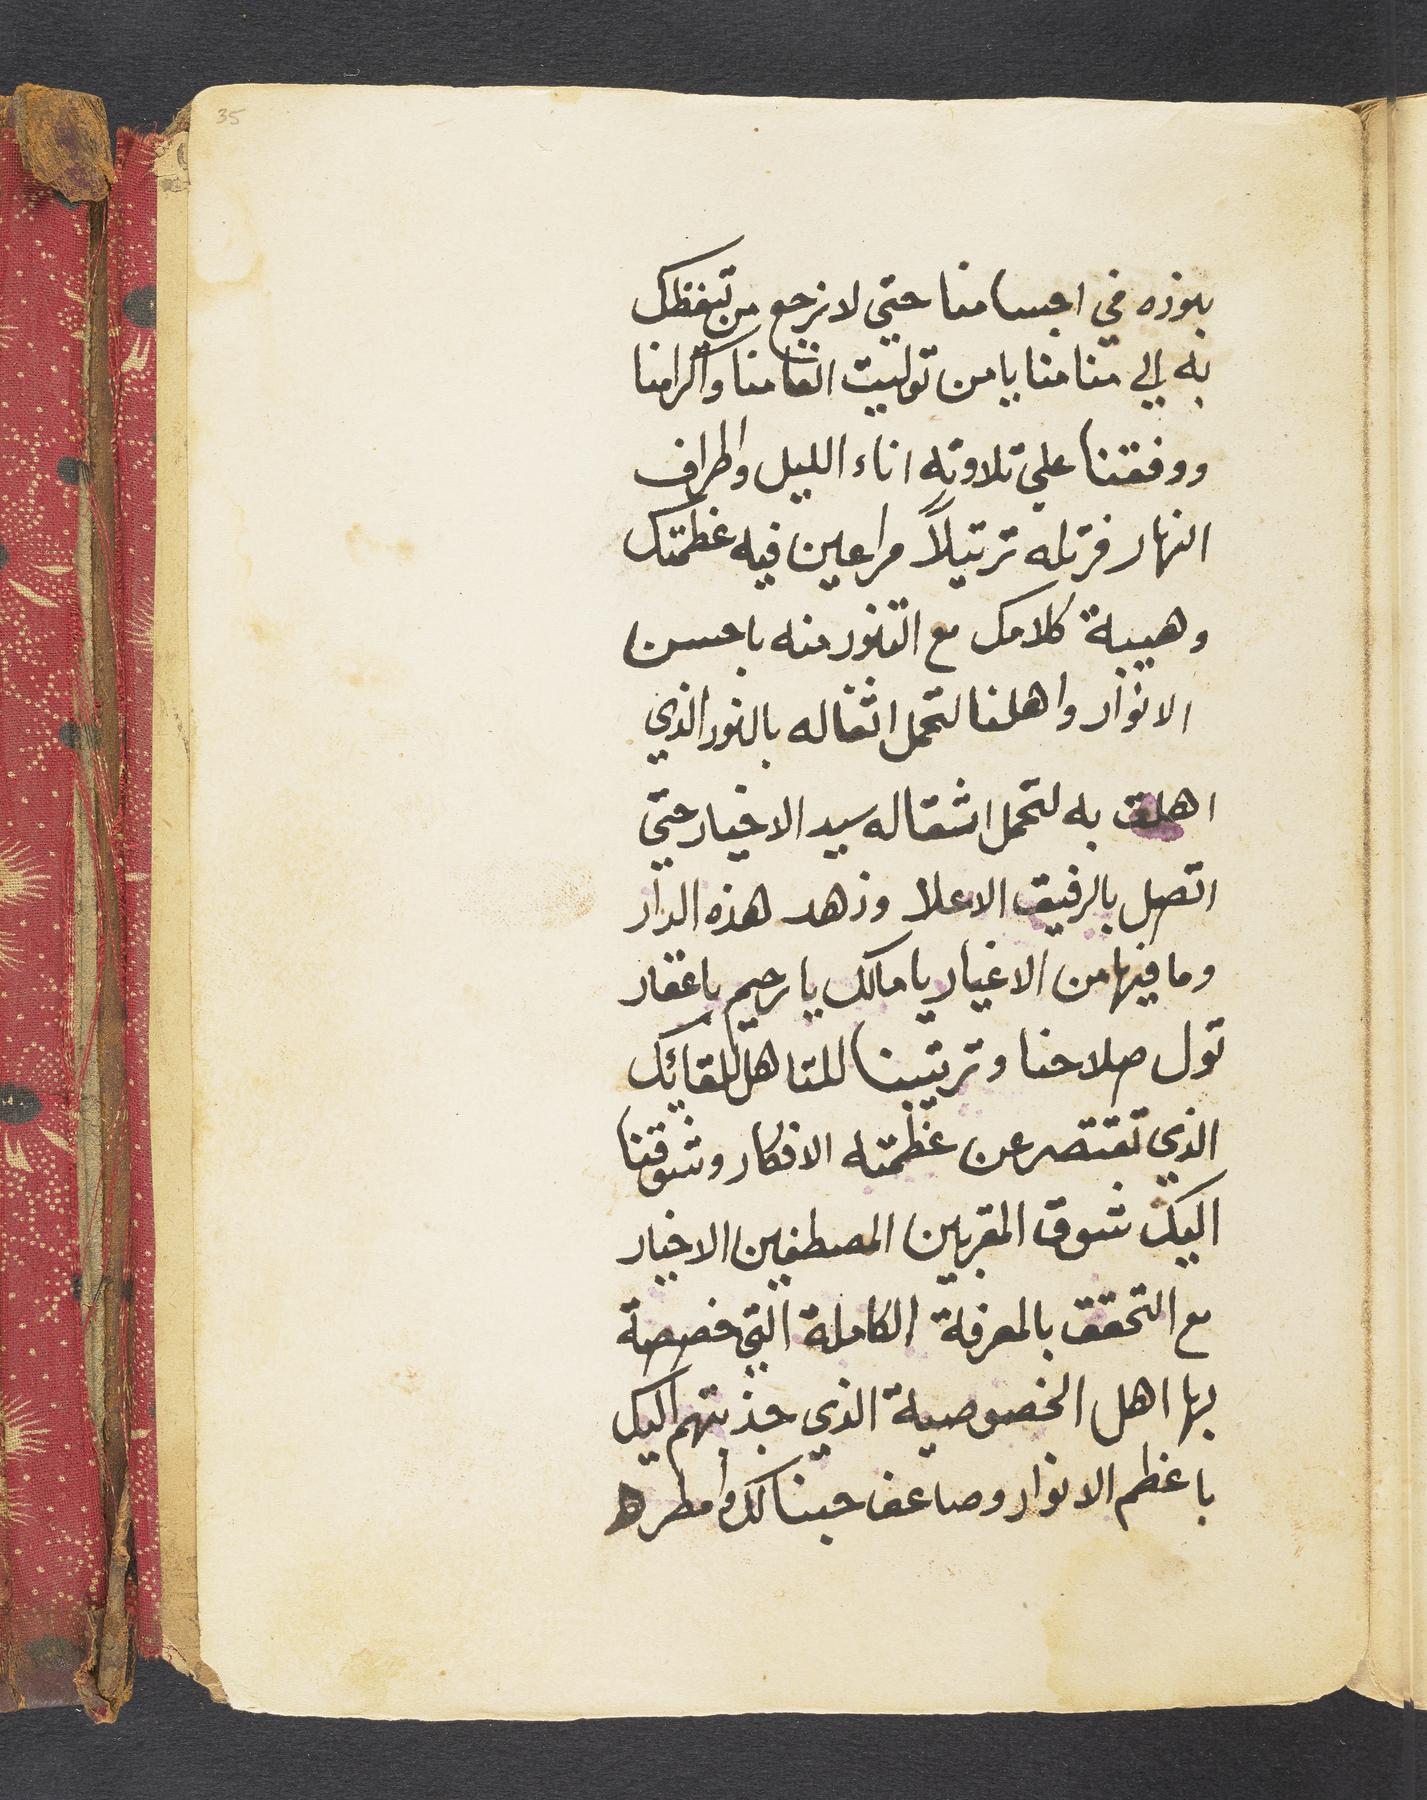 35
بنوره في اجسامنا حتي لا نرجع من تيقظك
به الي منامنا يا من توليت انعامنا واكرامنا
ووفقتنا علي تلاوته اناء الليل واطراف
النهار فرتله ترتيلاً مراعين فيه عظمتك
وهيبة كلامك مع التنور منه باحسن
الانوار واهلنا لتحمل اثقاله بالنور الذي
اهلت به لتحمل اثقاله سيد الاخيار حتي
اتصل بالرفيق الاعلا وزهد هذه الدار
وما فيها من الاغيار يا مالك يا رحيم يا غفار
تول صلاحنا وتربتينا للتاهل للقائك
الذي تقتصر عن عظمته الافكار وشوقنا
اليك شوق المقربين المصطفين الاخيار
مع التحقق بالمعرفة الكاملة التي خصصة
بها اهل الخصوصية الذي جذبتهم اليك
باعظم الانوار وضاعف حبنا لك وامطر